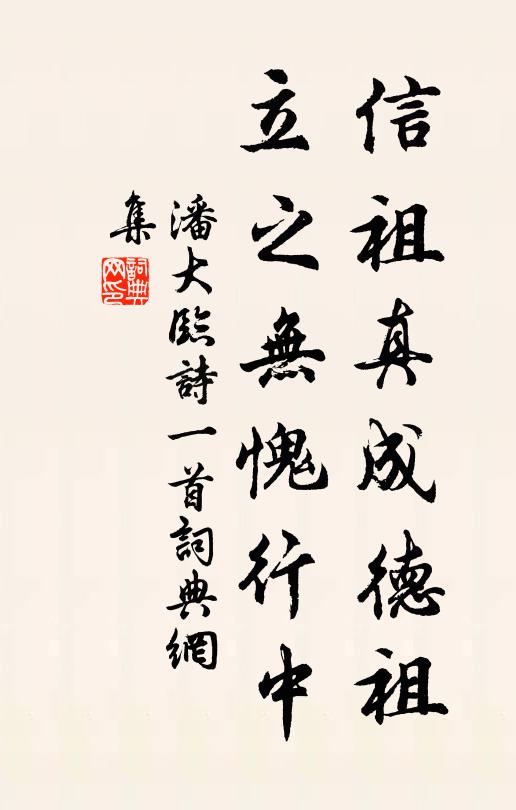 信祖真成德祖
立之無愧行中
潘大臨詩一首詞典網
集
詞典
网印